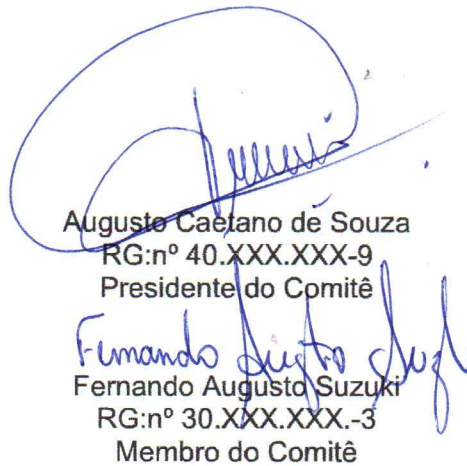 Augusto Caetano de Souza
RG:nº 40.XXX.XXX-9
Presidente do Comitê
Fernando Augusto Suz
Fernando Augusto Suzuki
RG:nº 30.XXX.XXX.-3
Membro do Comitê